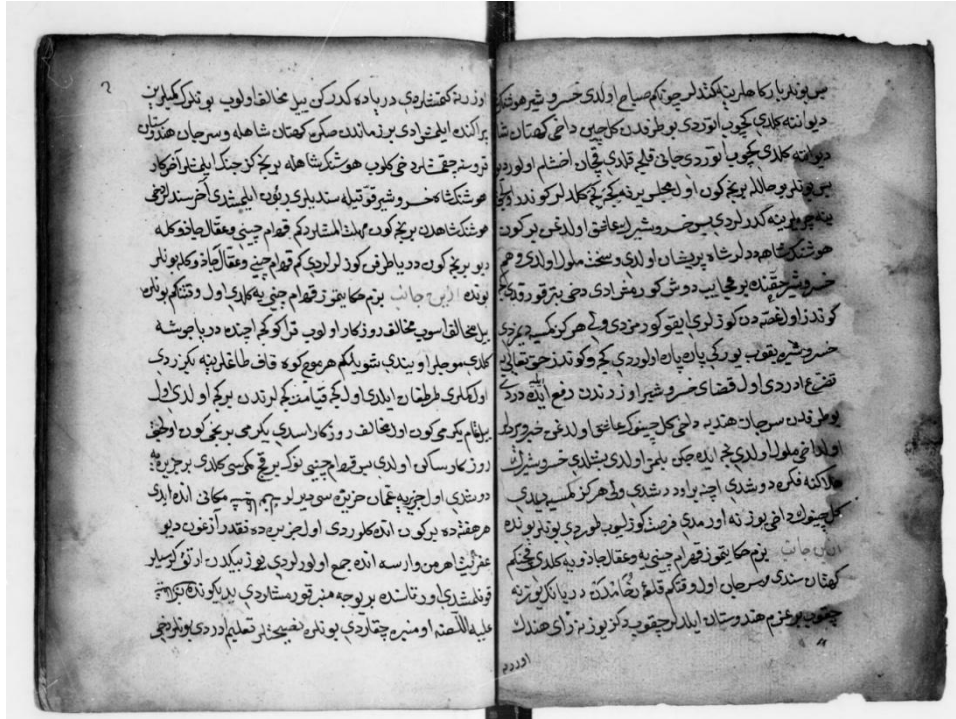 پس بونلر بارکاهلرینه کتدلر چونکم صباح اولدی خسرو شیر هوشنك
دیوانته کلدی کچوب اتوردی بو طرفدن کل چین داخی کهتان شاه
دیوانه کلدی کچوب اتوردی جانی قلدی قچان اخشام اولوردی
پس بونلر بو حالله بر نیجه کون اول مجلس کلدلر
ینه کدرلردی پس خسرو شیرك عاشق اولدغن بر کون
هوشنك شاهه دیدلر شاه پریشان اولدی و سخت ملول اولدی و هم
خسرو شیر حقنده بو عجایب دوش کورمش ادی دخی بتر قورقدی
کوندز اول غصه دن کوزلری ایقو کورمزدی ولی هرکز کمسیه دیمزدی
خسرو شیره یقوب یورکی پاره پاره اولوردی کیجه و کوندز حق تعالی یه
تضرع ادردی اول قضای خسرو شیر اوزرندن رفع ایده
بو طرفدن سرجان هندیه داخی کل چینوك عاشق اولدغن خبر وردلر
اول داخی ملول اولدی نیجه ایده جکن بلمز اولدی بشلدی خسرو شیرك
هلاکنه فکره دوشدی ولی هرکز کمسیه دیمدی
کل چینوك داخی یوزنه اورمدی فرصت کوزلیوب طوردی بونلر بونده
ازین جانب بزم حکایتموز قهرام چینی یه و عقال جاذویه کلدی قچنکم
کهتان سندی و سرجان اول وقتکم قلعه دن دریانك یوزنه
چقوب بو عزم هندوستان ایلدلر چقوب دکز یوزنه رای هندك
اوزرنه
اوزرنه کتمشلردی دریاده کدرکن ییل مخالف اولوب بونلرك کمیلرین
پراکنده ایلمش ادی بو زماندن صکره کهتان شاهله و سرجان هندوستان
چقمشلر دخی کلوب هوشنك شاهله بر نیجه کز جنك ایلمشلر آخر کار
هوشنك شاه خسرو شیر قوتیله سندیلری زبون ایلمشدی آخر سندلر دخی
هوشنك شاهدن بر نیجه کون مهلت المشلردکم قهرام چینی و عقال جاذو کله
دیو بر نیجه کون دریا طرفن کوزلرلردی کم قهرام چینی و عقال جاذو کله بونلر
بونده ازین جانب بزم حکایتموز قهرام چینی یه کلدی اول وقتنکم بونلره
ییل مخالف اسوب مخالف روزکار اولوب قراکو کیجه اچنده دریا جوشه
کلدی موجلر اویندی شویلکم هر موج کوه قاف طاغلرینه بکزردی
اول کملری طرطغان ایلدی اول کیجه قیامت کیجه لرندن بر کیجه اولدی اول
ییل تمام یکرمی کون اول مخالف روزکار اسدی یکرمی برنجی کون اولیجق
روزکار ساکن اولدی پس قهرام چینی نوك بر قچ کمسی کلدی بر جزیره یه
دوشدی اول جزیره عمان جزیره سی دیرلر مکانی انده ایدی
هر هفته ده بر کون انده کلوردی اول جزیره ده نقدر آزغون دیو
عفریت اهرمن وارسه انده جمع اولورلردی یوز بیکدن ارتق کرسیلر
قونلمشدی اورتالنده بر یوجه منبر قورمشلردی
علیه اللعنه او منبره چقاردی بونلره نصیحتلر تعلیم ادردی بونلر دخی